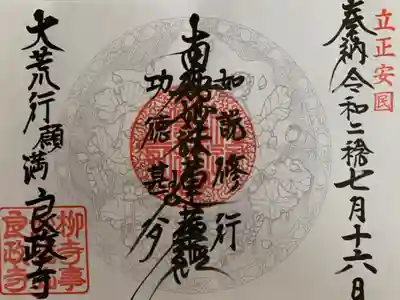 立正安国
奉納 令和二稔七月十六日
如説修行
南無妙法蓮華経
功徳甚多
大荒行願満 良政寺
良政寺